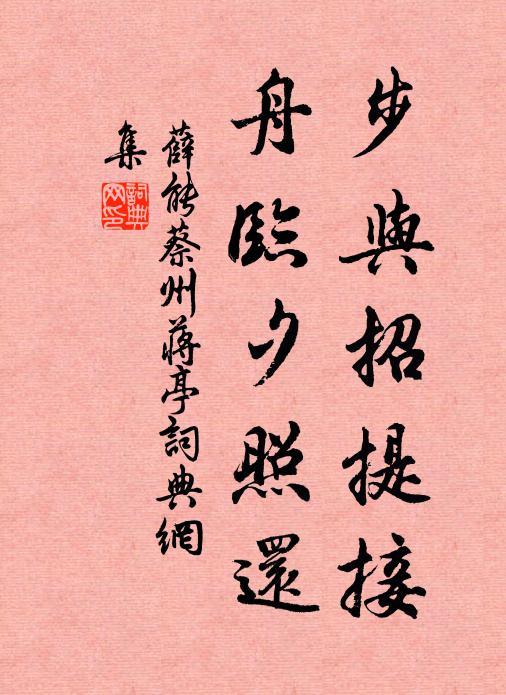 步與招提接
舟臨夕照還
薛能蔡州蔣亭詞典網
集
詞典
网印